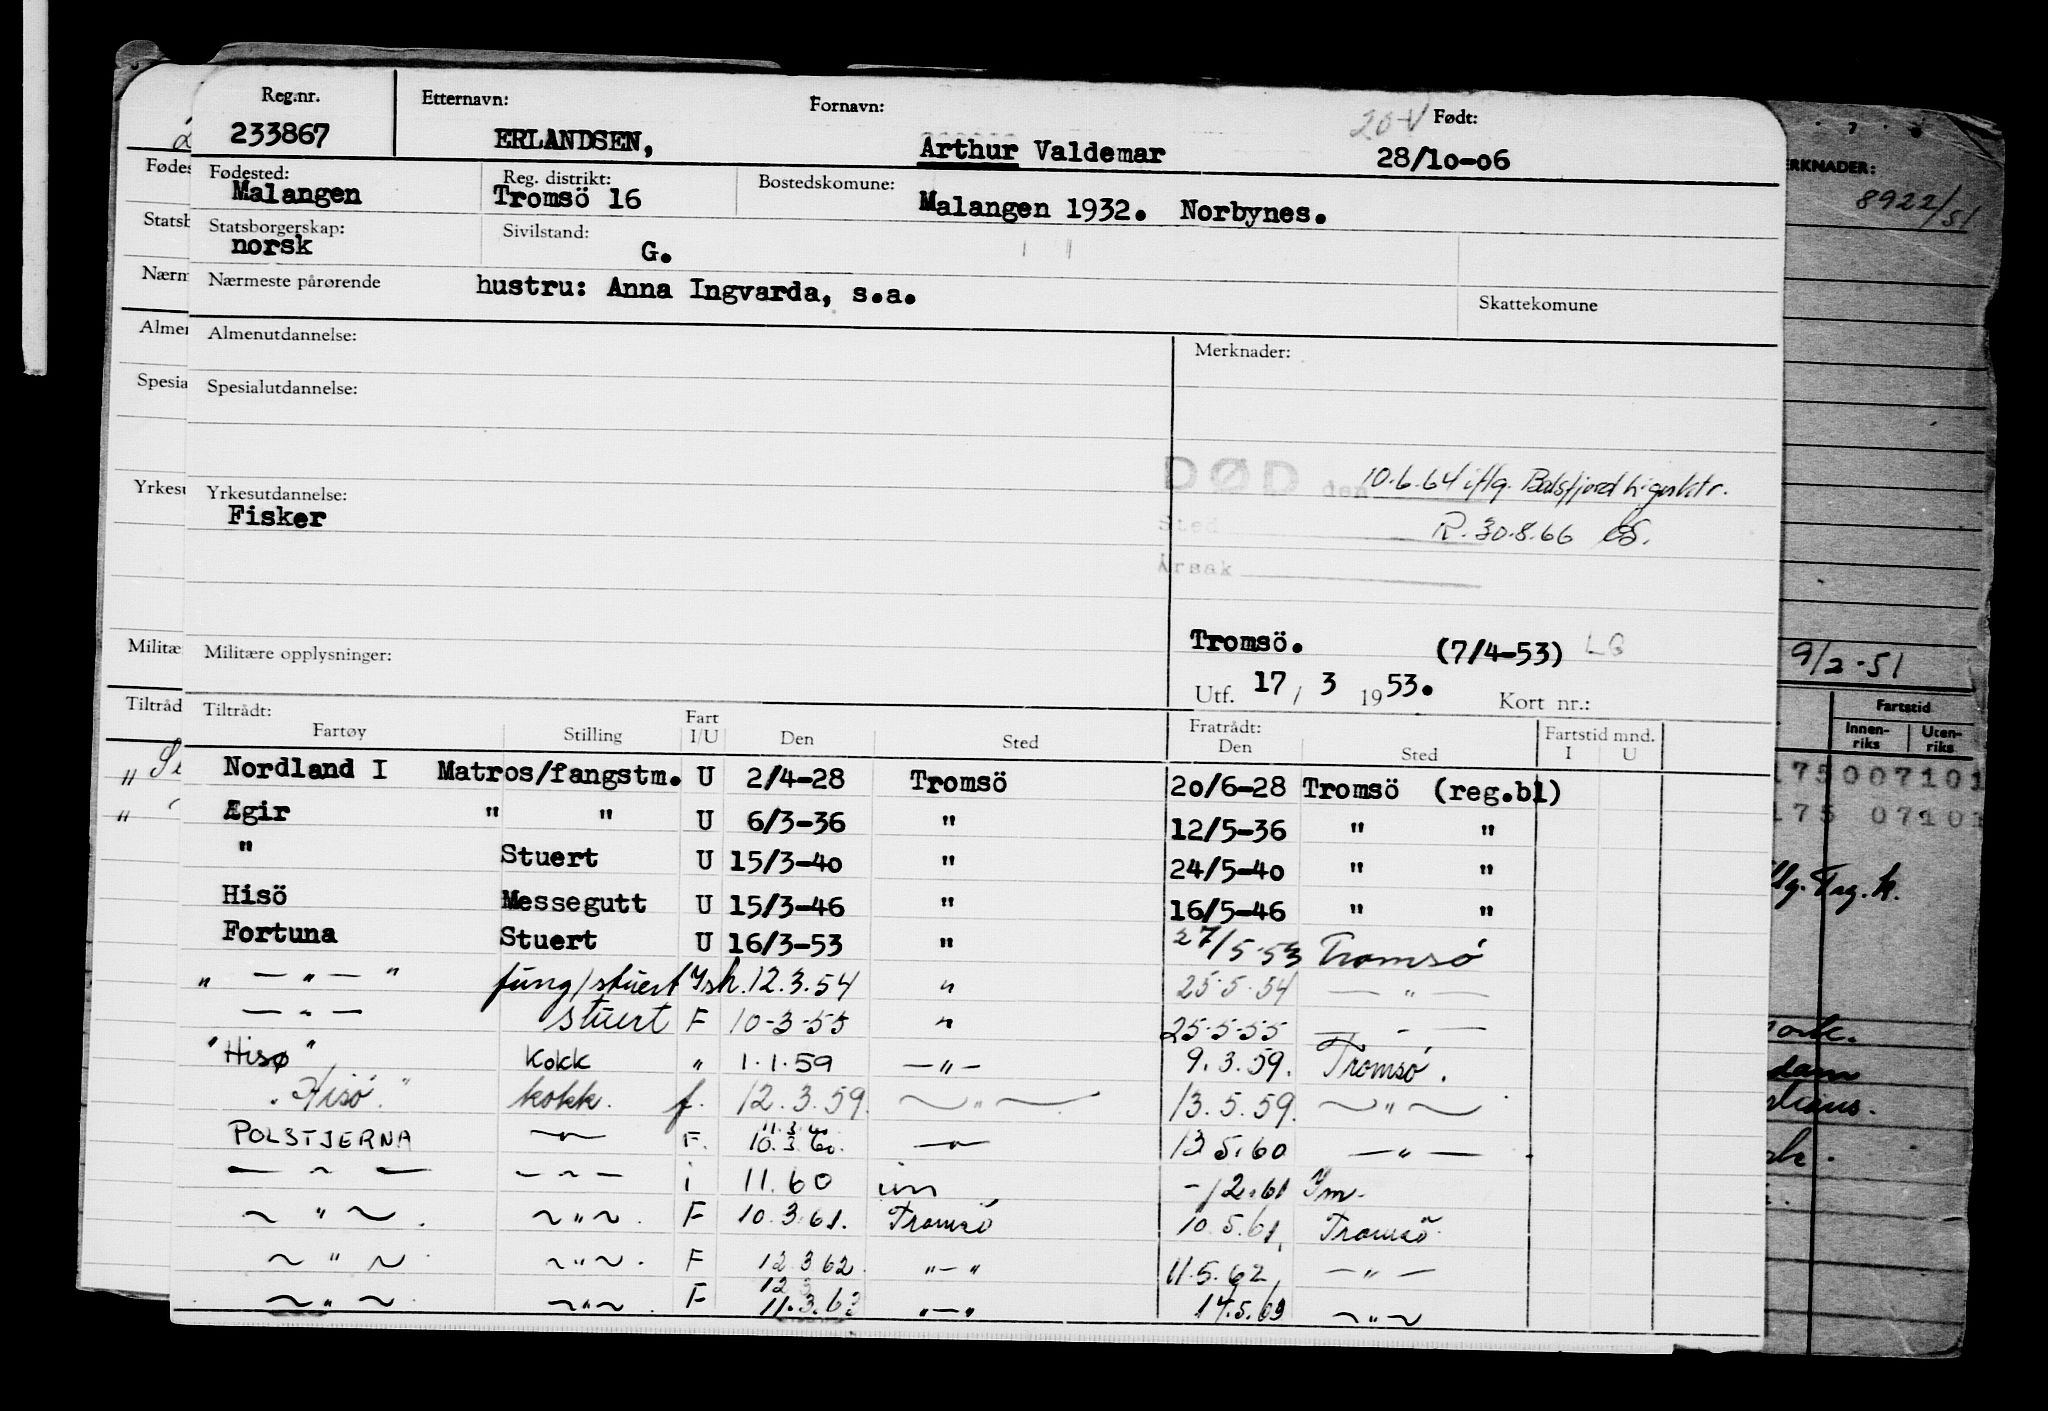 Reg.nr. Etternavn: Fornavn: 20-V Født:
233867 ERLANDSEN, Arthur Valdemar 28/10-06
Fødested: Reg. distrikt: Bostedskomune:
Malangen Tromsö 16 Malangen 1932. Norbynes.
Statsborgerskap: Sivilstand:
norsk G.
Nærmeste pårørende hustru: Anna Ingvarda, s.a. Skattekomune
Almenutdannelse: Merknader:
Spesialutdannelse:
DØD den 10.6.64 iflg. Balsfjord
Yrkesutdannelse:
Fisker
Sted R. 30.8.66
Årsak
Tromsö. (7/4-53) LG
Militære opplysninger:
Utf. 17 / 3 1953. Kort nr.:
Tiltrådt: Fratrådt:
Fartøy Stilling Fart I/U Den Sted Den Sted Fartstid mnd. I U
Nordland I Matros/fangstm. U 2/4-28 Tromsö 20/6-28 Tromsö (reg.bl)
Ægir " " U 6/3-36 " 12/5-36 " "
" Stuert U 15/3-40 " 24/5-40 " "
Hisö Messegutt U 15/3-46 " 16/5-46 " "
Fortuna Stuert U 16/3-53 " 27/5-53 Tromsö
" — " — " fung/stuert Ish. 12.3.54 " 25.5.54 — " —
— " — stuert F 10-3-55 " 25-5-55 — " —
"Hisø" kokk " 1.1.59 — " — 9.3.59. Tromsö.
"Hisö" kokk. f. 12.3.59. — " — 13.5.59. — " —
POLSTJERNA — " — F. 11.3.60 10.3.60. — " — 13.5.60 — " —
— " — — " — i 11.60 inn - 12.61 Ym.
— " — . — " — . F 10.3.61. Tromsö 10.5.61. Tromsö
— " — . — " — . F 12.3.62. " — " 11.5.62, — " —
— " — . — " — . F 12.3 11.3.63 " — " 14.5.63 — " —
Fødes
Statsb
Nærm
Almen
Spesia
Yrkesu
Militæ
Tiltråd
ERKNADER:
8922/51
9/2-51
Fartstid
Innen-riks Uten-riks
175007101
175 07101